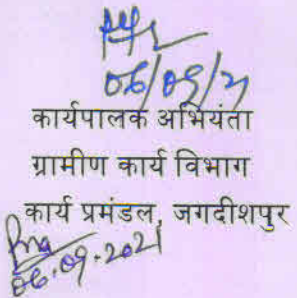 06/09/21
कार्यपालक अभियंता
ग्रामीण कार्य विभाग
कार्य प्रमंडल, जगदीशपुर
06.09.2021